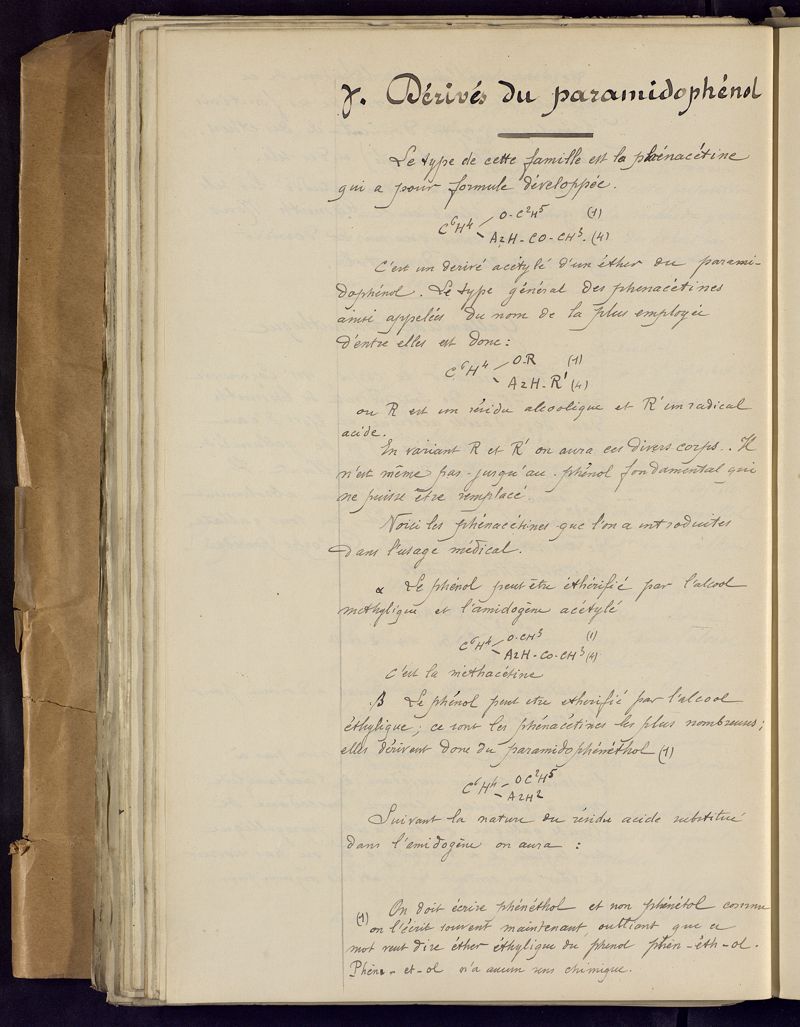 γ. Dérivés du paramidophénol
Le type de cette famille est la phénacétine
qui a pour formule développée.
C⁶H⁴ O-C²H⁵ (1)
AzH-CO-CH³. (4)
C'est un derivé acétylé d'un éther du parami-
dophénol. Le type général des phenacétines
ainsi appelées du nom de la plus employée
d'entre elles est donc :
C⁶H⁴ O-R (1)
AzH-R' (4)
ou R est un résidu alcoolique et R' un radical
acide.
En variant R et R' on aura ces divers corps.. Il
n'est même pas jusqu'au phénol fondamental qui
ne puisse être remplacé.
Voici les phénacétines que l'on a introduites
dans l'usage médical.
α Le phénol peut être éthérifié par l'alcool
methylique et l'amidogène acétylé
C⁶H⁴ O-CH³ (1)
AzH-CO-CH³ (4)
c'est la méthacétine
β Le phénol peut etre etherifié par l'alcool
éthylique ; ce sont les phénacétines les plus nombreuses ;
elles dérivent donc du paramidophénéthol (1)
C⁶H⁴ OC²H⁵
AzH²
Suivant la nature du résidu acide substitué
dans l'amidogène on aura :
(1) On doit écrire phénéthol et non phénétol comme
on l'écrit souvent maintenant, oubliant que ce
mot veut dire éther éthylique du phenol phén-éth-ol.
Phén-et-ol n'a aucun sens chimique.